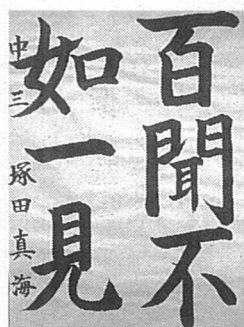 百聞不
如一見
中三 塚田真海